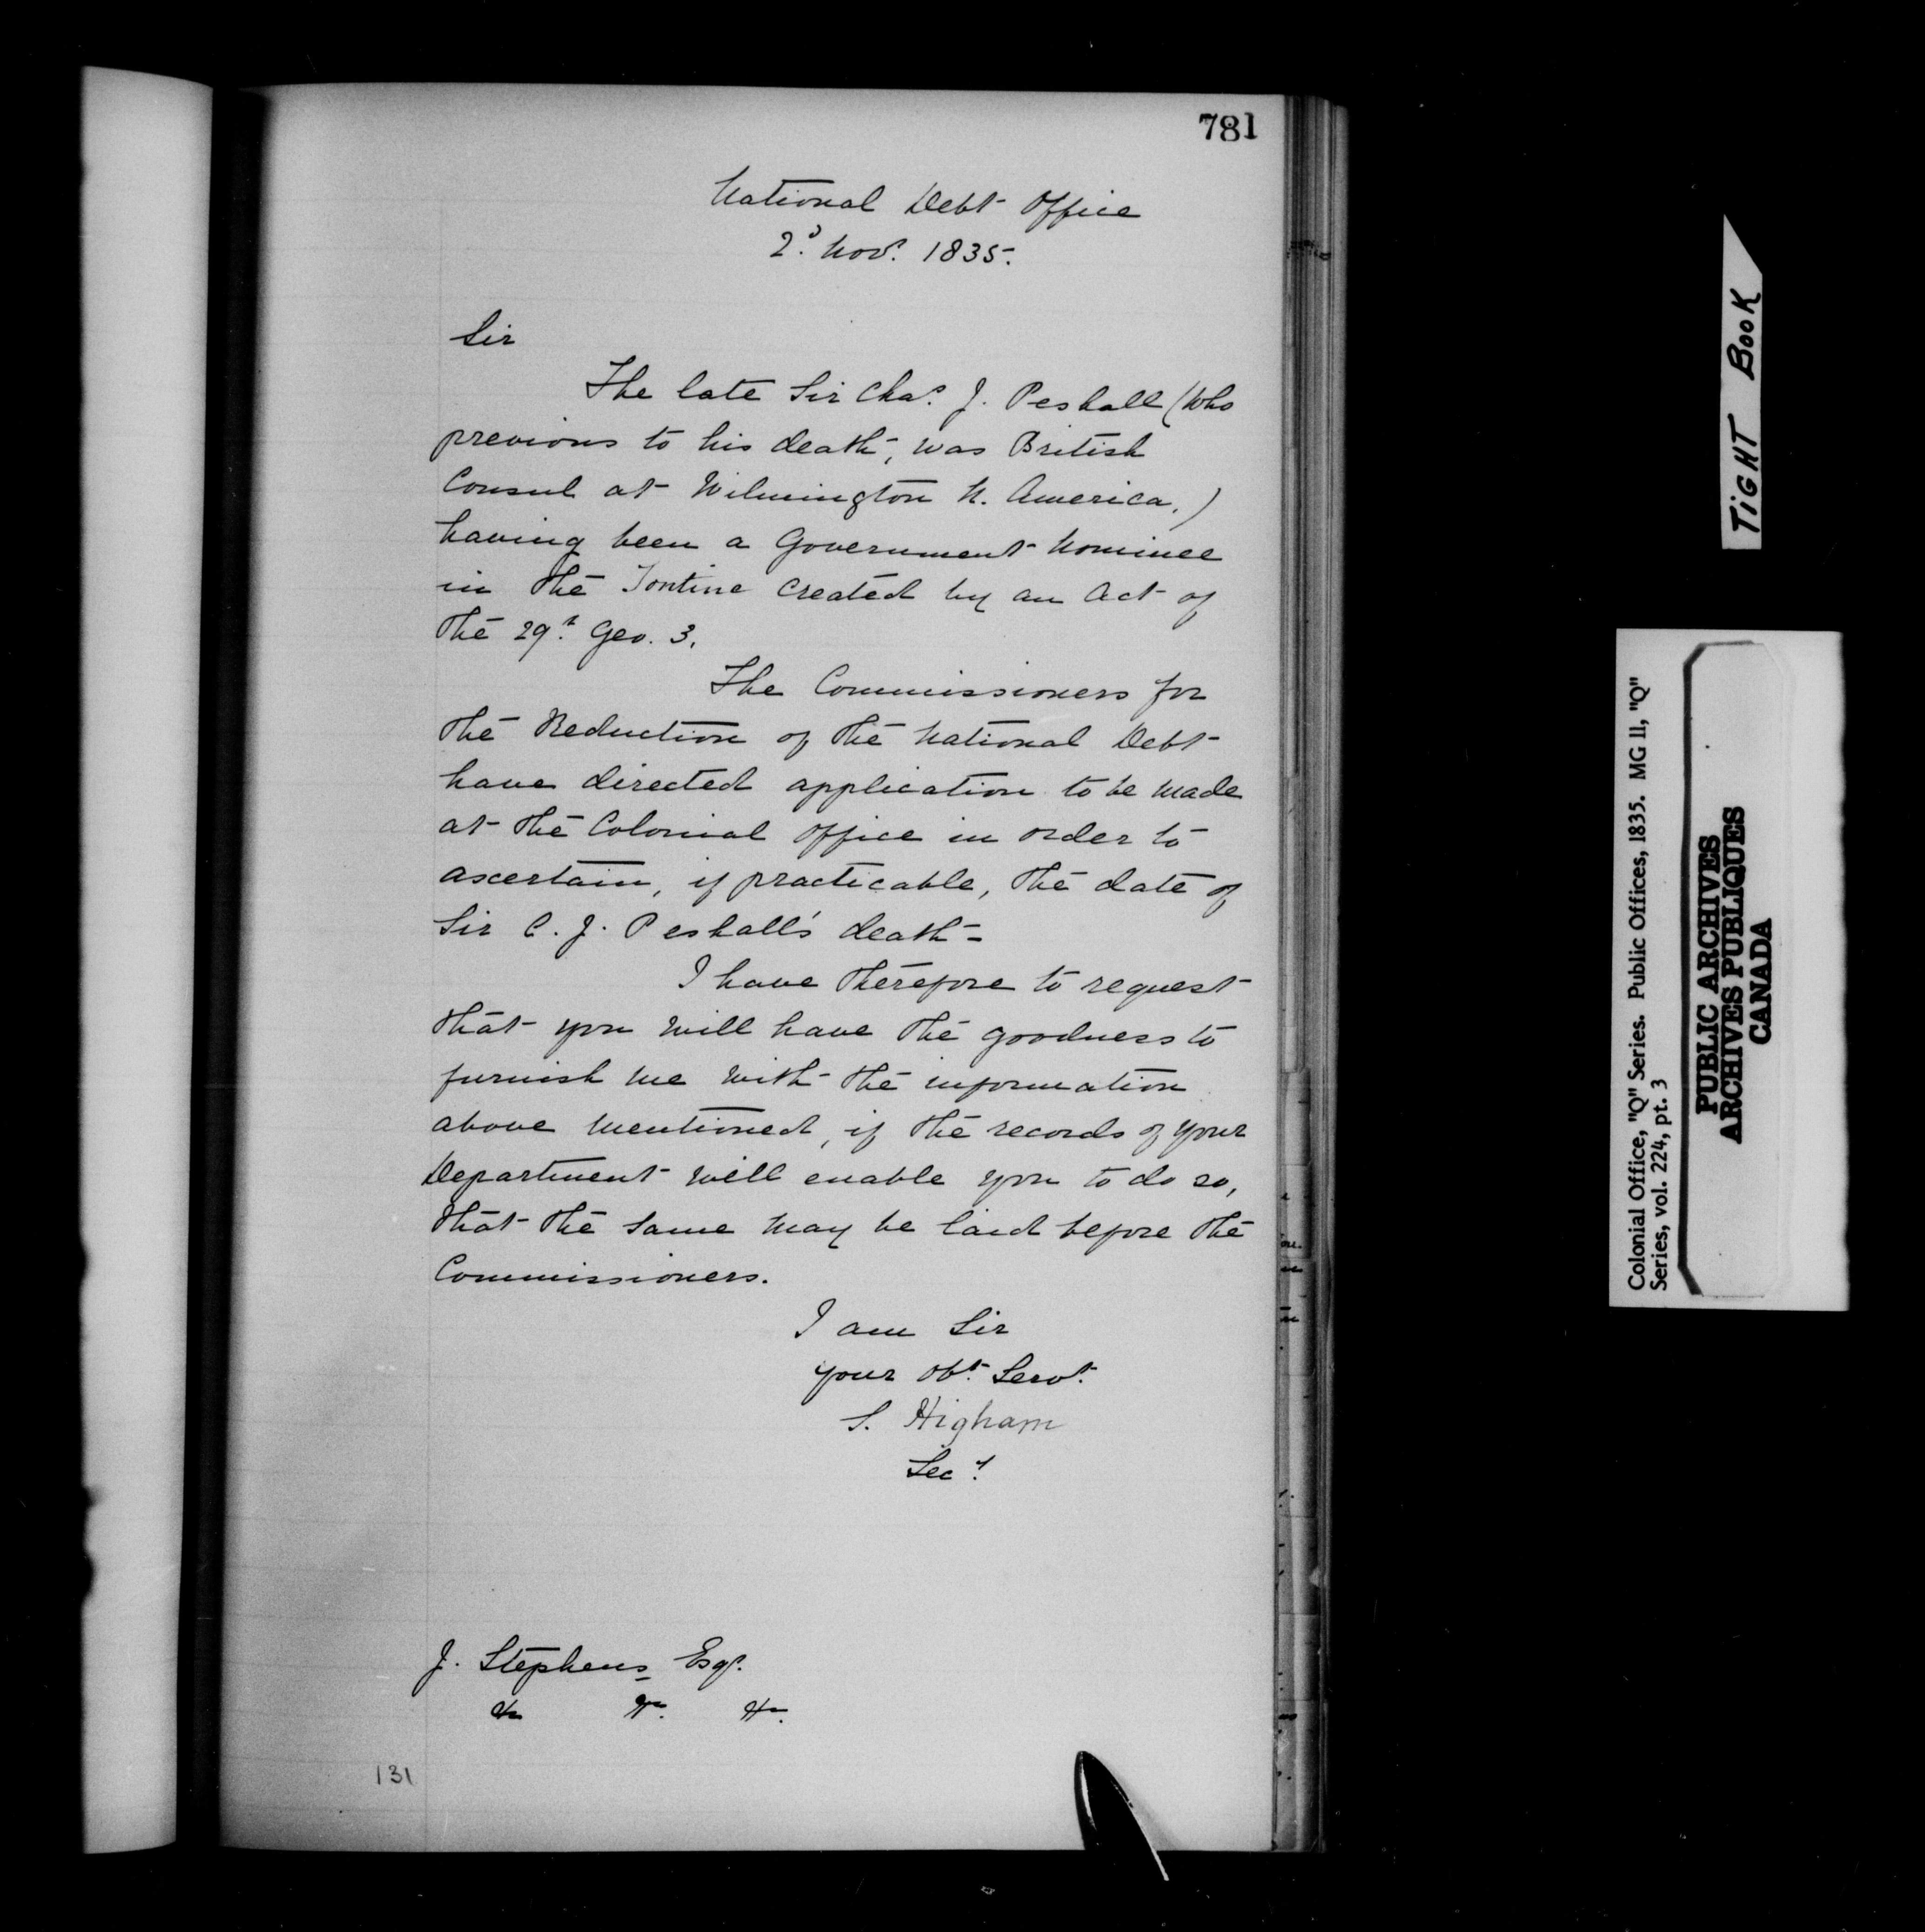 781
National Debt Office
2d. Nov. 1835.
Sir
The late Sir Chas. J. Peshall (who
previous to his death, was British
Consul at Wilmington N. America,)
having been a Government Nominee
in the Tontine created by an Act of
the 29t. Geo. 3.
The Commissioners for
the Reduction of the National Debt
have directed application to be made
at the Colonial Office in order to
ascertain, if practicable, the date of
Sir C. J. Peshall's death -
I have therefore to request
that you will have the goodness to
furnish me with the information
above mentioned, if the records of your
Department will enable you to do so,
that the same may be laid before the
Commissioners.
I am Sir
your obt. Servt.
S. Higham
Secy.
J. Stephens Esqr.
&c &c. &c.
131
TIGHT BOOK
Colonial Office, "Q" Series. Public Offices, 1835. MG 11, "Q"
Series, vol. 224, pt. 3
PUBLIC ARCHIVES
ARCHIVES PUBLIQUES
CANADA